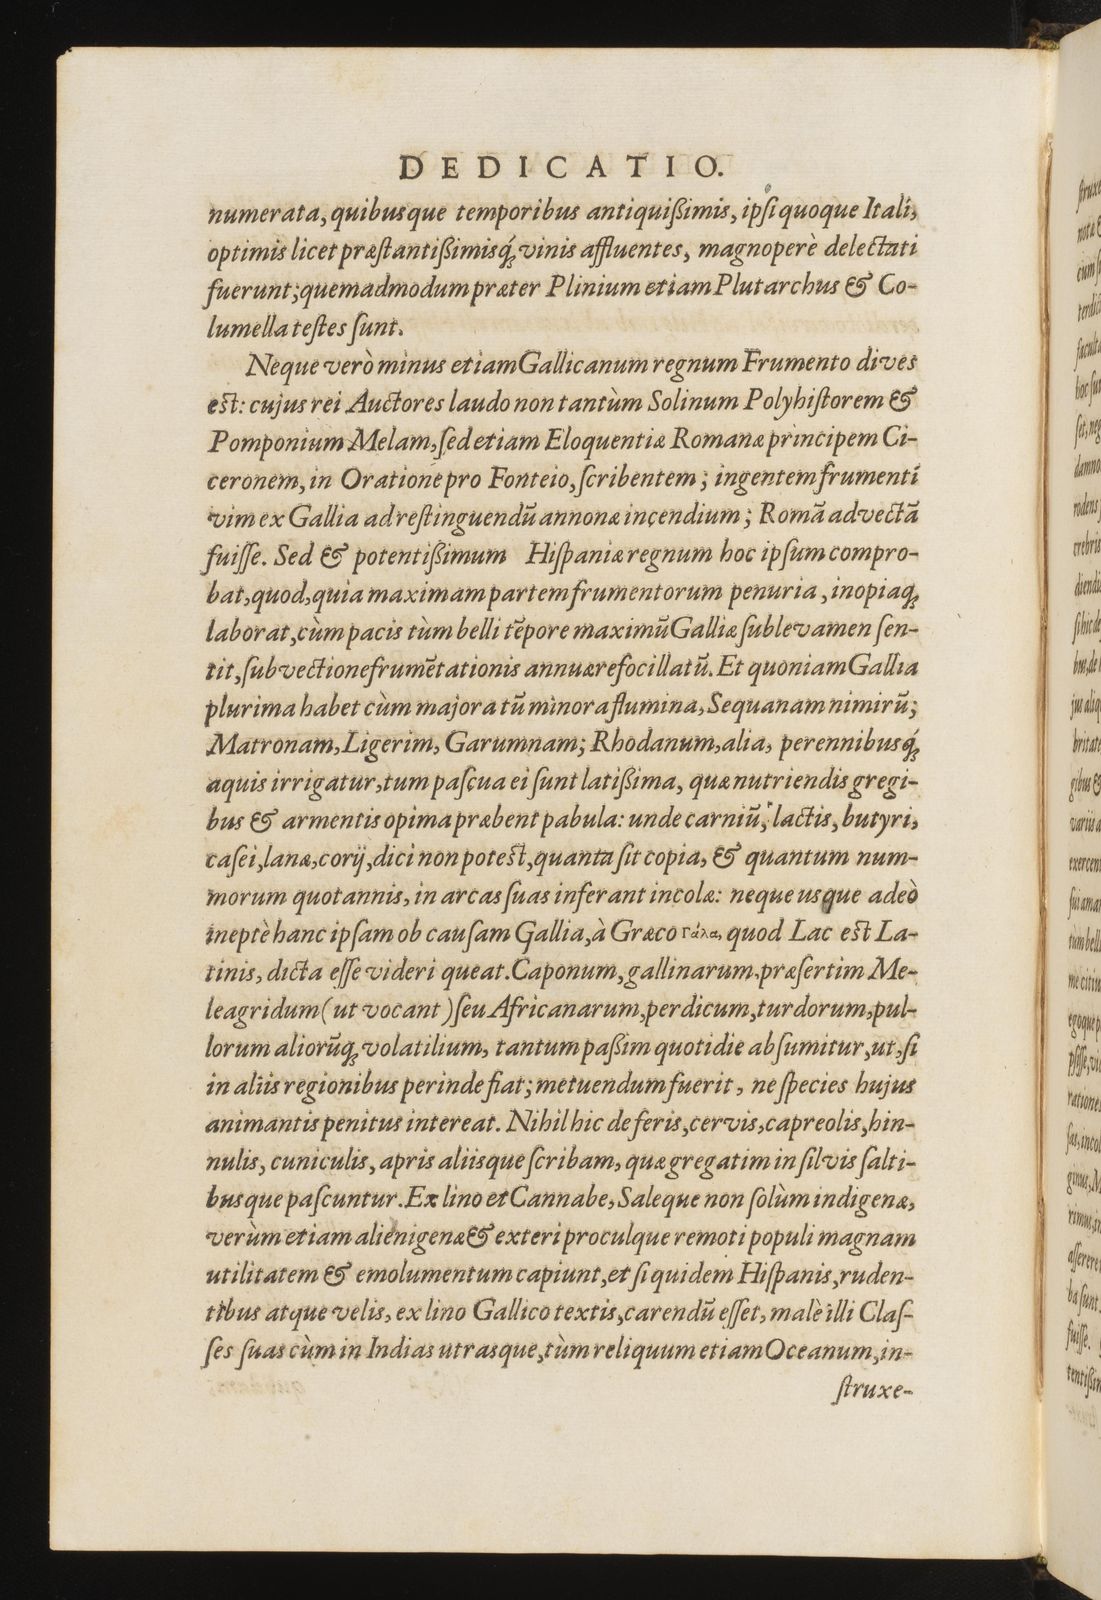 DEDICATIO.
numerata, quibusque temporibus antiquißimis, ipſi quoque Itali,
optimis licet præſtantißimisq́; vinis affluentes, magnoperè delectati
fuerunt; quemadmodum præter Plinium etiam Plutarchus & Co-
lumella teſtes ſunt.
Neque verò minus etiam Gallicanum regnum Frumento dives
est: cujus rei Auctores laudo non tantùm Solinum Polyhiſtorem &
Pomponium Melam, ſed etiam Eloquentiæ Romanæ principem Ci-
ceronem, in Oratione pro Fonteio, ſcribentem; ingentem frumenti
vim ex Gallia ad reſtinguendū annonæ incendium; Romā advectā
fuiſſe. Sed & potentißimum Hiſpaniæ regnum hoc ipſum compro-
bat, quod, quia maximam partem frumentorum penuria, inopiaq;
laborat, cùm pacis tùm belli tēpore maximū Galliæ ſublevamen ſen-
tit, ſubvectione frumētationis annuæ refocillatū. Et quoniam Gallia
plurima habet cùm majora tū minora flumina, Sequanam nimirū;
Matronam, Ligerim, Garumnam; Rhodanum, alia, perennibusq́;
aquis irrigatur, tum paſcua ei ſunt latißima, quæ nutriendis gregi-
bus & armentis opima præbent pabula: unde carniū, lactis, butyri,
caſei, lanæ, corij, dici non potest, quanta ſit copia, & quantum num-
morum quotannis, in arcas ſuas inferant incolæ: neque usque adeò
ineptè hanc ipſam ob cauſam Gallia, à Græco Γάλα, quod Lac est La-
tinis, dicta eſſe videri queat. Caponum, gallinarum, præſertim Me-
leagridum (ut vocant) ſeu Africanarum, perdicum, turdorum, pul-
lorum aliorūq; volatilium, tantum paßim quotidie abſumitur, ut, ſi
in aliis regionibus perinde fiat; metuendum fuerit, ne ſpecies hujus
animantis penitus intereat. Nihil hic de feris, cervis, capreolis, hin-
nulis, cuniculis, apris aliisque ſcribam, quæ gregatim in ſilvis ſalti-
busque paſcuntur. Ex lino et Cannabe, Saleque non ſolùm indigenæ,
verùm etiam alienigenæ & exteri proculque remoti populi magnam
utilitatem & emolumentum capiunt, et ſiquidem Hiſpanis, ruden-
tibus atque velis, ex lino Gallico textis, carendū eſſet, malè illi Claſ-
ſes ſuas cùm in Indias utrasque, tùm reliquum etiam Oceanum, in-
ſtruxe-